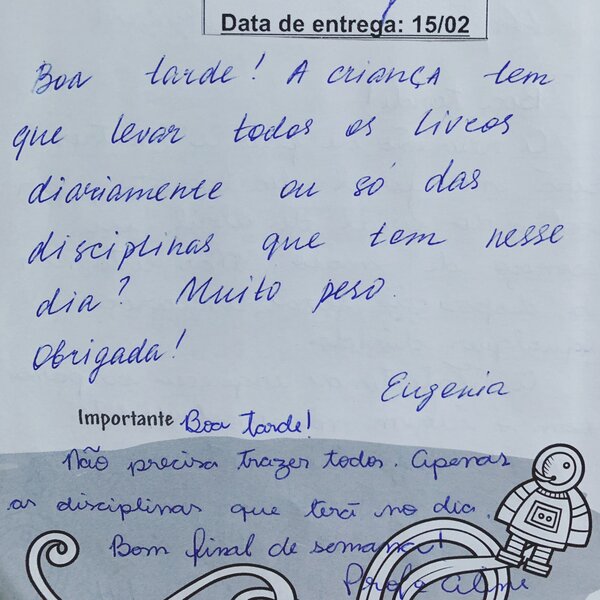 Data de entrega: 15/02
Boa tarde! A criança tem
que levar todos os livros
diariamente ou só das
disciplinas que tem nesse
dia? Muito peso.
Obrigada!
Eugenia
Importante Boa tarde!
Não precisa trazer todos. Apenas
as disciplinas que terá no dia.
Bom final de semana!
Profª Aline